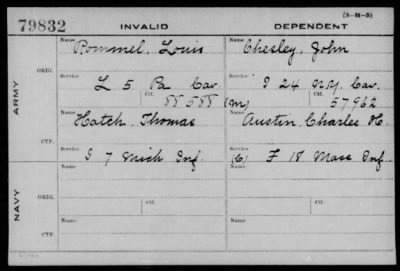 (3-H-5)
79832 INVALID DEPENDENT
ARMY
ORIG.
Name Rommel, Louis Name Chesley, John
Service L 5 Pa Cav. Service I 24 N.Y. Cav.
Ctf. 88588 (M) Ctf. 57962
CTF.
Name Hatch, Thomas Name Austin, Charles H.
Service I 7 Mich Inf Service (C) F 18 Mass Inf.
NAVY
ORIG.
Name Name
Ctf. Ctf.
CTF.
Name Name